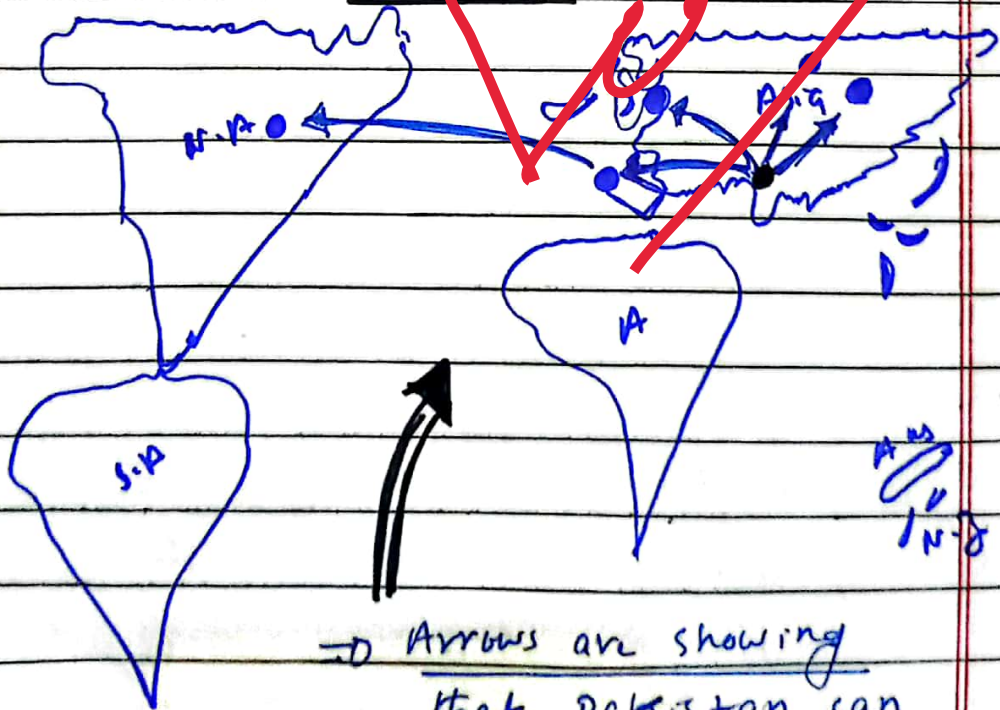 Asia
N.A
A
S.A
Aus
N-Z
⇒ Arrows are showing
that Pakistan can